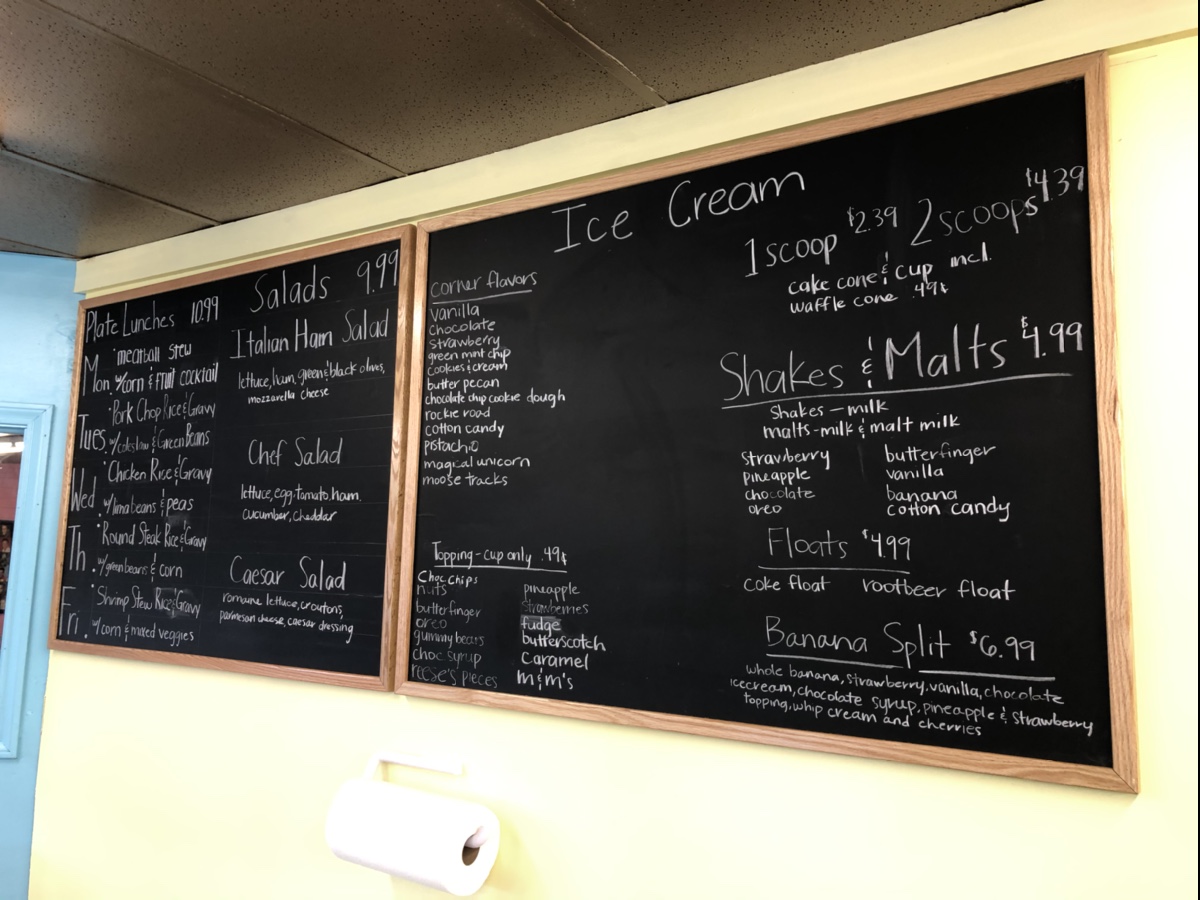 Plate Lunches 10.99
Mon. • meatball stew
w/corn & fruit cocktail
Tues. • Pork Chop Rice & Gravy
w/coleslaw & Green Beans
Wed. • Chicken Rice & Gravy
w/lima beans & peas
Th. • Round Steak Rice & Gravy
w/green beans & corn
Fri. • Shrimp Stew Rice & Gravy
w/corn & mixed veggies
Salads 9.99
Italian Ham Salad
lettuce, ham, green & black olives,
mozzarella cheese
Chef Salad
lettuce, egg, tomato, ham,
cucumber, cheddar
Caesar Salad
romaine lettuce, croutons,
parmesan cheese, caesar dressing
Ice Cream
corner flavors
vanilla
chocolate
strawberry
green mint chip
cookies & cream
butter pecan
chocolate chip cookie dough
rockie road
cotton candy
pistachio
magical unicorn
moose tracks
Topping - cup only .49¢
Choc chips
nuts
butterfinger
oreo
gummy bears
choc syrup
reese's pieces
pineapple
strawberries
fudge
butterscotch
caramel
m&m's
1 scoop $2.39 2 scoops $4.39
cake cone & cup incl.
waffle cone .49¢
Shakes & Malts $4.99
Shakes - milk
malts - milk & malt milk
strawberry
pineapple
chocolate
oreo
butterfinger
vanilla
banana
cotton candy
Floats $4.99
coke float rootbeer float
Banana Split $6.99
whole banana, strawberry, vanilla, chocolate
icecream, chocolate syrup, pineapple & strawberry
topping, whip cream and cherries